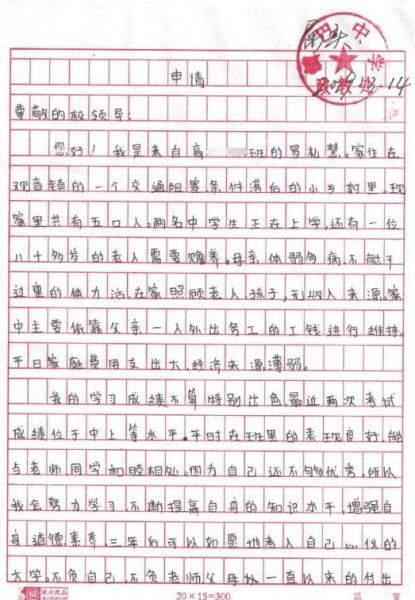 申请
尊敬的校领导:
您好!我是来自高 班的罗礼慧。家住在
观音镇的一个交通阻塞条件落后的小乡村里,现
家里共有五口人。两名中学生正在上学,还有一位
八十多岁的老人需要赡养。母亲体弱多病,不能干
过重的体力活,在家照顾老人、孩子,无收入来源。家
中主要依靠父亲一人外出务工的工钱进行维持。
平日家庭费用支出大,经济来源薄弱。
我的学习成绩不算特别出色,最近两次考试
成绩位于中上等水平。平时在班里的表现良好,能
与老师同学和睦相处。因为自己还不够优秀,所以
我会努力学习,不断提高自身的知识水平,增强自
身道德素养,三年后可以如愿地考入自己心仪的
大学。不负自己,不负老师父母如一直以来的付出
20×15=300
第 页